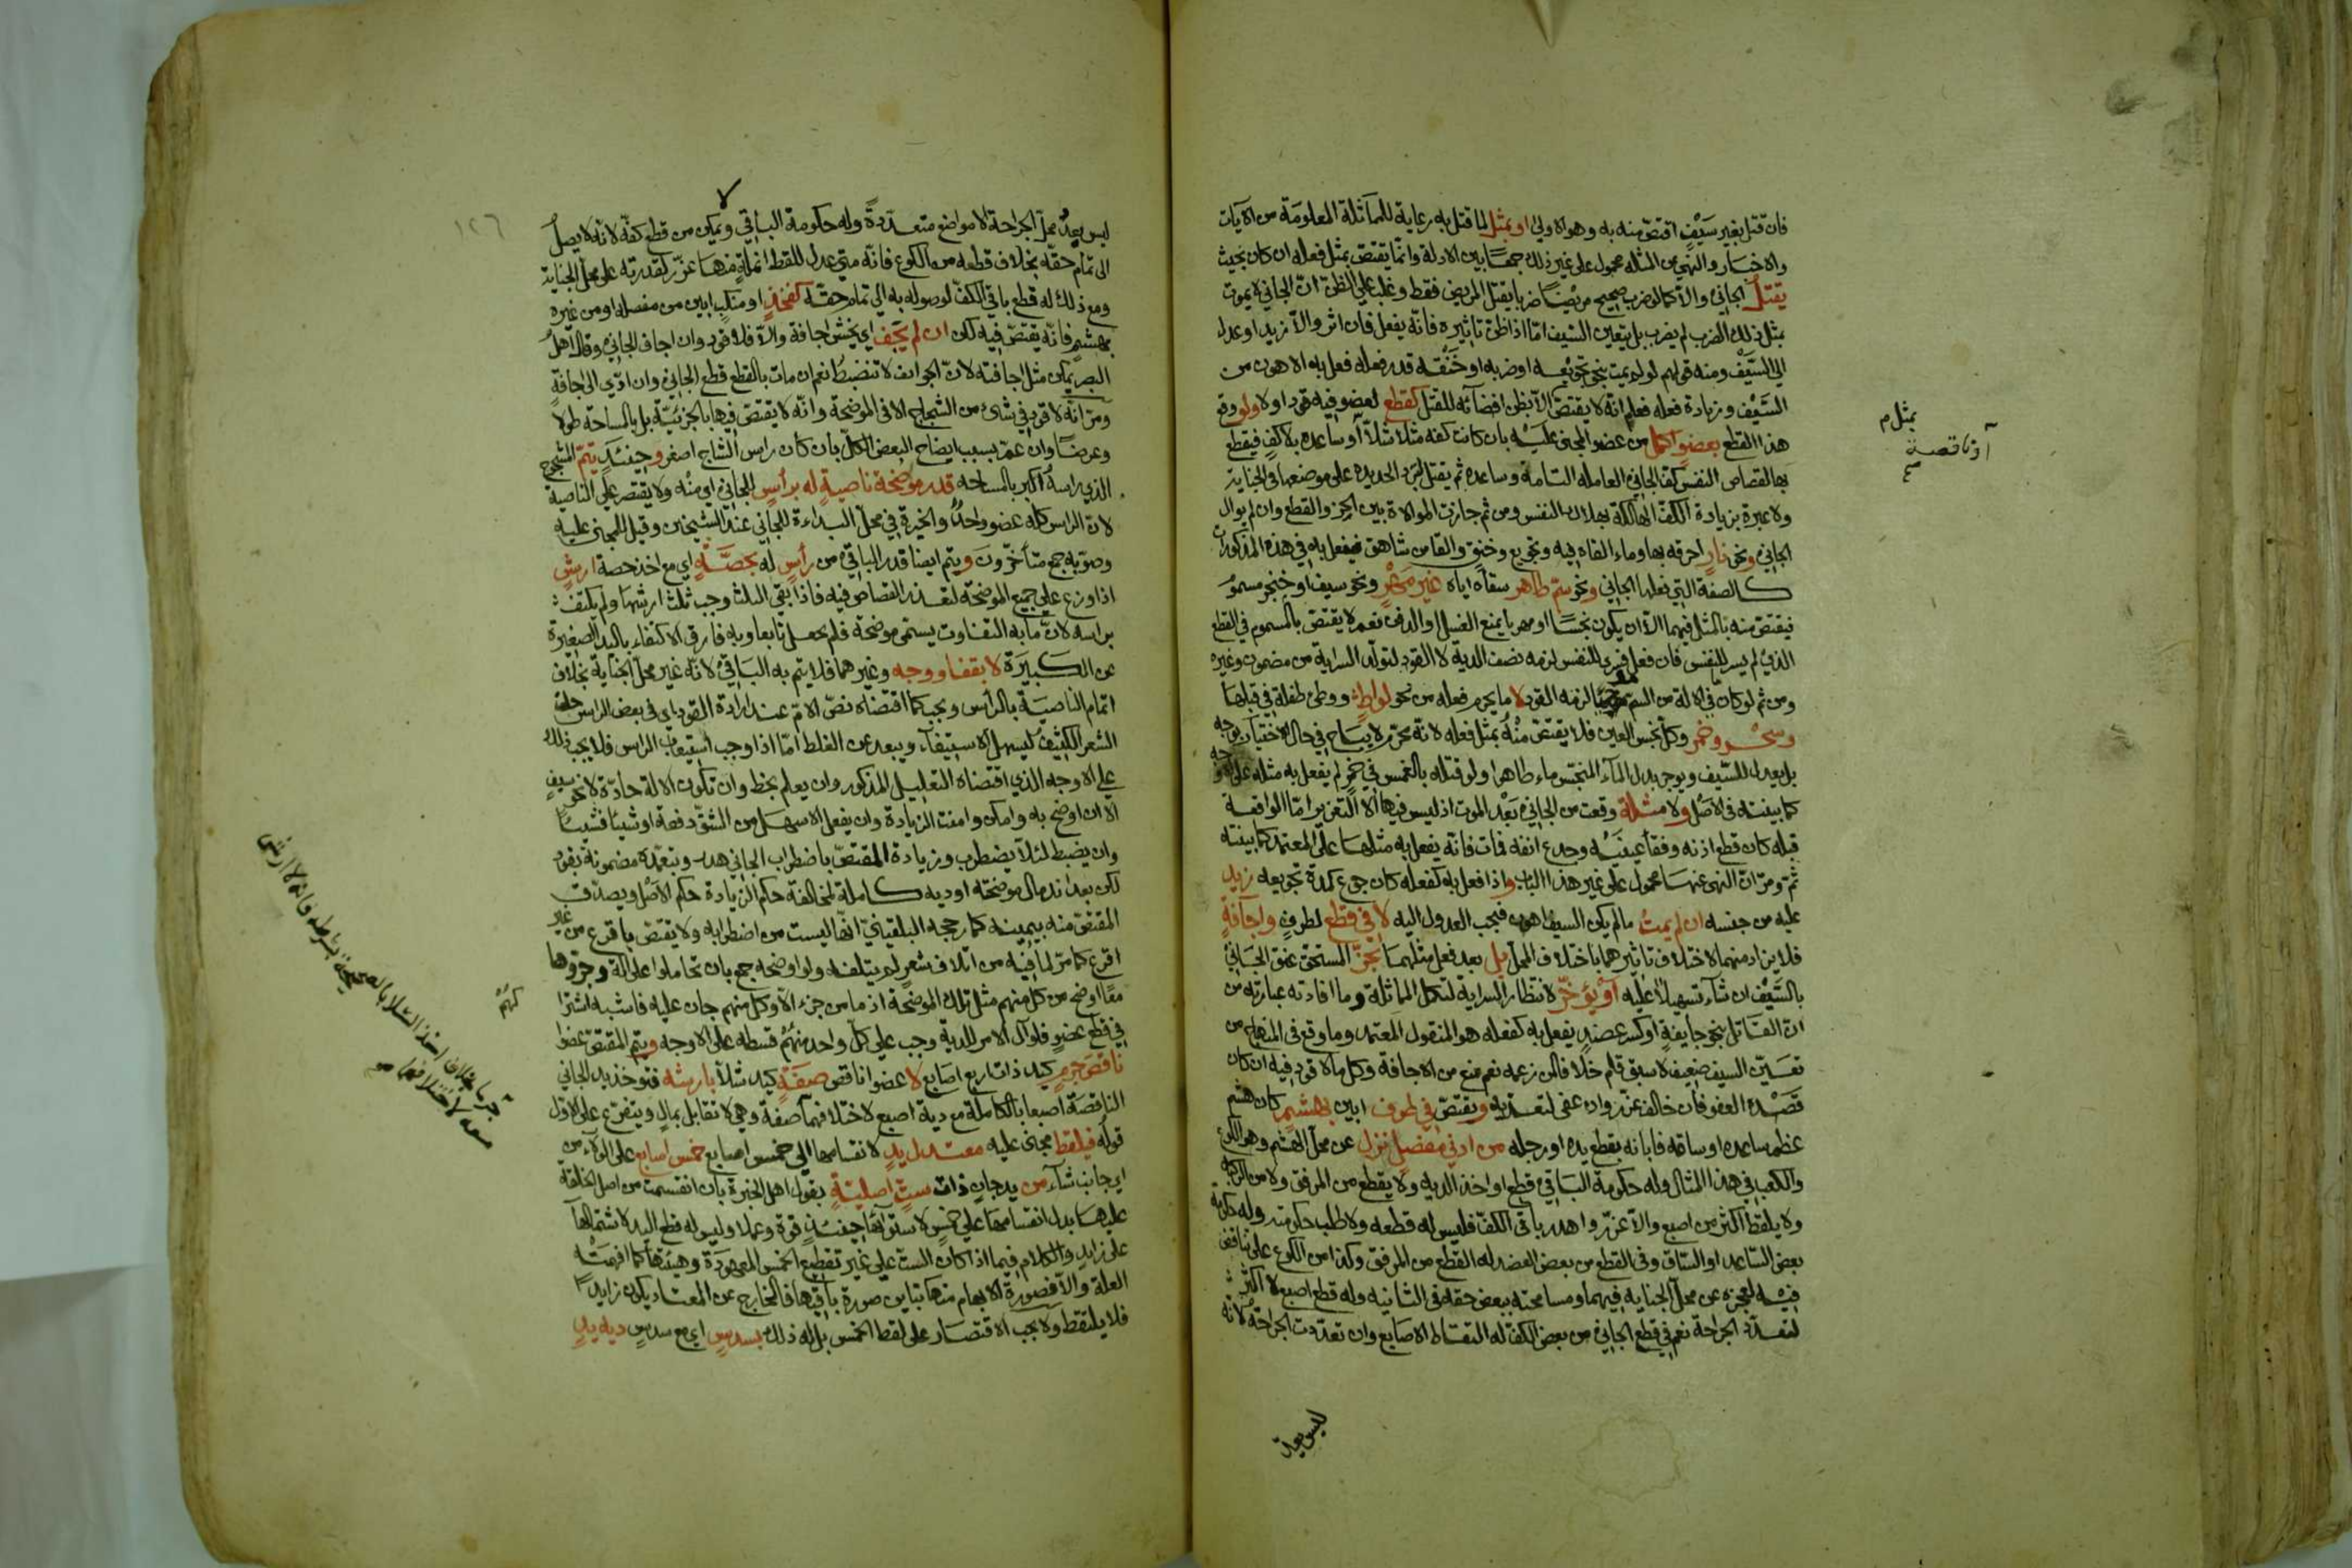 فان قتل بغير سيف اقتص منه به وهو الاولى او بمثل ما قتل به رعاية للماثلة المعلومة من الآيات
والاخبار والنهي عن المثلة محمول على غير ذلك جمعا بين الادلة وانما يقتص بمثل فعله ان كان بحيث
يقتل الجاني والا كما لو ضرب صحيح مريضا ضربا يقتل المريض فقط وغلب على الظن ان الجاني لا يموت
بمثل ذلك الضرب لم يضرب بل يتعين السيف اما اذا ظن تاثيره فانه يفعل فان اثر والا زيد او عدل
الى السيف ومنه قولهم لو لم يمت بنحو تجويعه او ضربه او خنقه قدر فعله فعل به الاهون من
السيف وزيادة فعله فعلم انه لا يقتص الا بظن افضائه للقتل كقطع لعضو فيه قود اولا ولو وقع
هذا القطع بعضو اكمل من عضو المجنى عليه بان كانت كفه مثلا شلا او ساعده بلا كف فيقطع
بها لقصاص النفس كف الجاني العاملة التامة وساعده ثم يقتل لترد الحديدة على موضعها في الجناية
ولا عبرة بزيادة الكف الهالكة بهلاك النفس ومن ثم جازت الموالاة بين الحز والقطع وان لم يوال
الجاني ونحو نار احرقه بها وماء القاه فيه وتجويع وخنق والقا من شاهق فيفعل به في هذه المذكورات
كالصفة التي فعلها الجاني ونحو سم طاهر سقاه اياه غير مهر ونحو سيف او خنجر مسموم
فيقتص منه بالمثل فيهما الا ان يكون نجسا او مهريا يمنع الغسل او الدفن نعم لا يقتص بالمسموم في القطع
الذي لم يسر للنفس فان فعل فسرى للنفس لزمه نصف الدية لا القود لتولد السراية من مضمون وغيره
ومن ثم لو كان في الالة من السم لزمه القود لا ما يحرم فعله من نحو لواط ووطئ طفلة في قبلها
وسحر وخمر وكل نجس العين فلا يقتص منه بمثل فعله لانه محرم لا يباح في حال الاختيار بوجه
بل يعدل للسيف ويوجر بدل الماء النجس ماء طاهرا ولو قتله بالغمس في خمر لم يفعل به مثله على الاوجه
كما بينته في الاصل ولا مثلة وقعت من الجاني بعد الموت اذ ليس فيها الا التعزير اما الواقعة
قبله كان قطع اذنه وفقأ عينيه وجدع انفه فمات فانه يفعل به مثلها على المعتمد كما بينته
ثم ومر ان النهي عنها محمول على غير هذا الباب واذا فعل به كفعله كان جوع كمدة تجويعه زيد
عليه من جنسه ان لم يمت ما لم يكن السيف اهون فيجب العدول اليه لا في قطع لطرف واجافة
فلا يزاد منهما لاختلاف تاثيرهما باختلاف المحل بل بعد فعل مثلهما تحز المستحق عنق الجاني
بالسيف ان شاء تسهيلا عليه او يؤخر لانتظار السراية لتكمل المماثلة وما افادته عبارته من
ان القاتل بنحو جايفة او كسر عضد يفعل به كفعله هو المنقول المعتمد وما وقع في المنهاج من
تعيين السيف ضعيف لا سبق قلم خلافا لمن زعمه نعم يمنع من الاجافة وكل ما لا قود فيه ان كان
قصده العفو فان خالف عزر وان عفى لتعديه ويقتص في طرف ابين بهشم كان هشم
عظم ساعده او ساقه فابانه بقطع يده او رجله من ادنى مفصل نزل عن محل الهشم وهو الكوع
والكعب في هذا المثال وله حكومة الباقي قطع او اخذ الدية ولا يقطع من المرفق ولا من الركبة
ولا يلقط اكثر من اصبع والا عزر واهدر باقي الكف فليس له قطعه ولا طلب حكومته وله حكومة
بعض الساعد او الساق وفي القطع من بعض العضد له القطع من المرفق وكذا من الكوع على تناقض
فيه لعجزه عن محل الجناية فيهما ومسامحته ببعض حقه في الثانية وله قطع اصبع لا اكثر
لتعدد الجراحة نعم في قطع الجاني من بعض الكف له التقاط الاصابع وان تعددت الجراحة لانه
ليس بعد
بمثل م
او ناقصة
١٢٦
ليس بعد محل الجراحة الا مواضع متعددة وله حكومة الباقي ويمكن من قطع كفه لانه لا يصل
الى تمام حقه بخلاف قطعه من الكوع فانه متى عدل للقط انملة منها عزر كقدرته على محل الجناية
ومع ذلك له قطع باقي الكف لوصوله به الى تمام حقه كفخذ او منكب ابين من مفصله او من غيره
بهشم فانه يقتص فيه لكن ان لم يجف اي يخش اجافة والا فلا قود وان اجاف الجاني وقال اهل
البصر يمكن مثل اجافته لان الجوائف لا تنضبط نعم ان مات بالقطع قطع الجاني وان ادى الى اجافة
ومر انه لا قود في شئ من الشجاج الا في الموضحة وانه لا يقتص فيها بالجزئية بل بالمساحة طولا
وعرضا وان عم بسبب ايضاح البعض الكل بان كان راس الشاج اصغر وحينئذ يتم المشجوج
الذي راسه اكبر بالمساحة قدر موضحة ناصية له برأس للجاني اي منه ولا يقتصر على الناصية
لان الراس كله عضو واحد والخيرة في محل البداءة للجاني عند الشيخين وقيل للمجنى عليه
وصوبه جمع متأخرون ويتم ايضا قدر الباقي من رأس له بحصة اي مع اخذ حصة ارش
اذا وزع على جميع الموضحة لتعذر القصاص فيه فاذا بقي الثلث وجب ثلث ارشها ولم يكتف
براسه لان ما به التفاوت يسمى موضحة فلم يجعل تابعا وبه فارق الاكتفاء باليد الصغيرة
عن الكبيرة لا بقفا ووجه وغيرهما فلا يتم به الباقي لانه غير محل الجناية بخلاف
اتمام الناصية بالرأس ويجب كما اقتضاه نص الام عند ارادة القود اي في بعض الراس حلق
الشعر الكثيف ليسهل الاستيفاء ويبعد عن الغلط اما اذا وجب استيعاب الراس فلا يجب ذلك
على الاوجه الذي اقتضاه التعليل المذكور وان يعلم بخط وان تكون الالة حادة لا نحو سيف
الا ان اوضح به وامكن وامنت الزيادة وان يفعل الاسهل من الشق دفعة او شيئا فشيئا
وان يضبط لئلا يضطرب وزيادة المقتص باضطراب الجاني هدر وبتعمده مضمونة بقود
لكن بعد اندمال موضحته او دية كاملة لمخالفة حكم الزيادة حكم الاصل ويصدق
المقتص منه بيمينه كما رجحه البلقيني انها ليست من اضطرابه ولا يقتص باقرع من غير
اقرع كما مر لما فيه من اتلاف شعر لم يتلفه ولو اوضحه جمع بان تحاملوا على الة وجروها
معا اوضح من كل منهم مثل تلك الموضحة اذ ما من جزء الا وكل منهم جان عليه فاشبه اشتراكهم
في قطع عضو فلو آل الامر للدية وجب على كل واحد منهم قسطه على الاوجه ويتم المقتص عضوا
ناقص جرم كيد ذات اربع اصابع لا عضوا ناقص صفة كيد شلا بارشه فتؤخذ يد الجاني
الناقصة اصبعا بالكاملة مع دية اصبع لاختلافهما صفة وهي لا تقابل بمال ويتفرع على الاول
قوله فيلقط مجنى عليه معتدل يد لانقسامها الى خمس اصابع خمس اصابع على الولاء من
اي جانب شاء من يد جان ذات ست اصلية بقول اهل الخبرة بان انقسمت من اصل الخلقة
عليها بدل انقسامها على خمس لاستوائها حينئذ قوة وعملا وليس له قطع اليد لاشتمالها
على زايد والكلام فيما اذا كان الست على غير تقطيع الخمس المعهودة وهيئتها كما افهمته
العلة والا فصورة الابهام منها تباين صورة باقيها فالخارج عن المعتاد يكون زايدا
فلا يلتقط ولا يجب الاقتصار على لقط الخمس بل له ذلك بسدس اي مع سدس دية يد